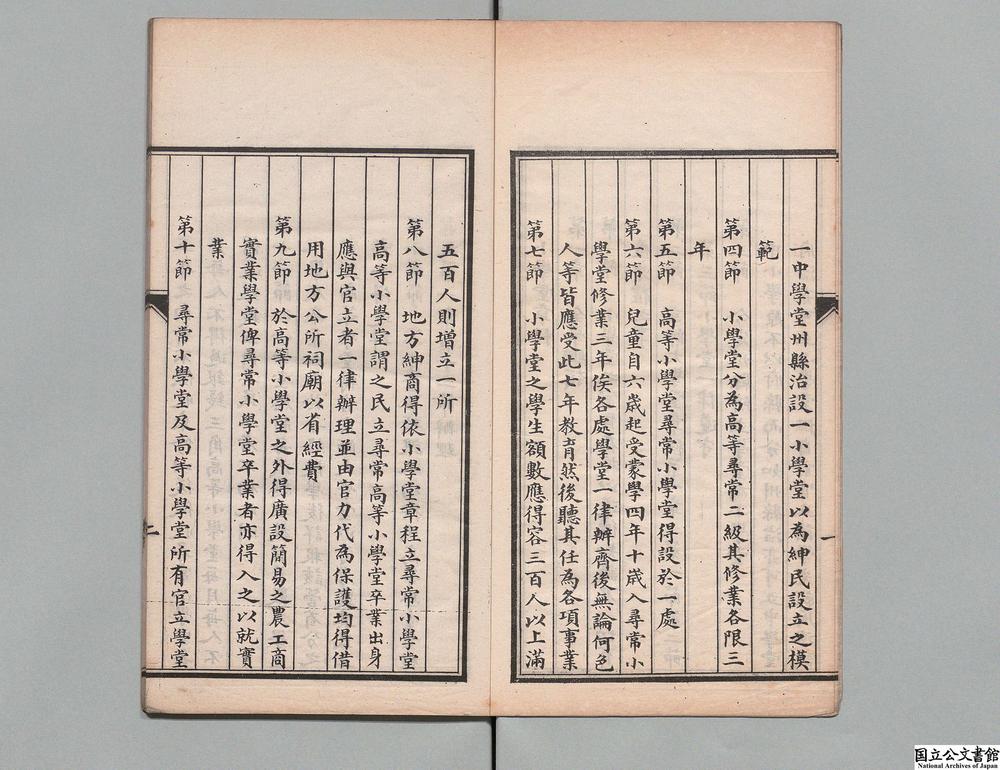 一中學堂州縣治設一小學堂以為紳民設立之模
範
第四節　小學堂分為高等尋常二級其修業各限三
年
第五節　高等小學堂尋常小學堂得設於一處
第六節　兒童自六歲起受蒙學四年十歲入尋常小
學堂修業三年俟各處學堂一律辦齊後無論何色
人等皆應受此七年教育然後聽其任為各項事業
第七節　小學堂之學生額數應得容三百人以上滿
一
五百人則增立一所
第八節　地方紳商得依小學堂章程立尋常小學堂
高等小學堂謂之民立尋常高等小學堂卒業出身
應與官立者一律辦理並由官力代為保護均得借
用地方公所祠廟以省經費
第九節　於高等小學堂之外得廣設簡易之農工商
實業學堂俾尋常小學堂卒業者亦得入之以就實
業
第十節　尋常小學堂及高等小學堂所有官立學堂
国立公文書館
National Archives of Japan